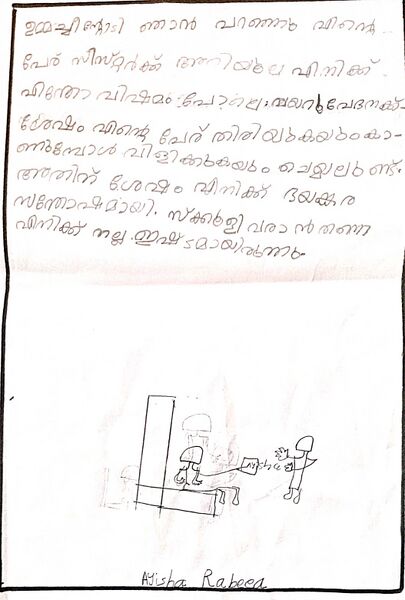 ഉമ്മച്ചിന്റോടി ഞാൻ പറഞ്ഞു വിന്റെ
പേര് സിസ്റ്റർക്ക് അറിയൂല എനിക്ക്.
എന്തോ വിഷമം പോലെ. വയറുവേദനക്ക്
ശേഷം എന്റെ പേര് തിരിയുകയും കാ-
ണുമ്പോൾ വിളിക്കുകയും ചെയ്യലുണ്ട്.
അതിന് ശേഷം എനിക്ക് ഭയങ്കര
സന്തോഷമായി. സ്ക്കൂളി വരാൻ തന്നെ
എനിക്ക് നല്ല ഇഷ്ടമായിരുന്നു.
Ayisha Rabeea